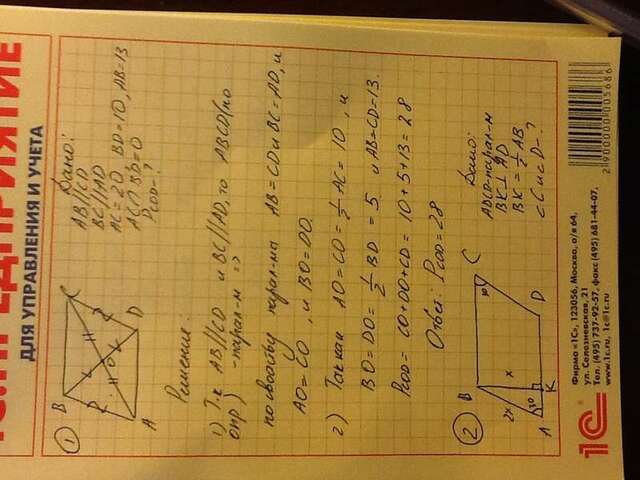 ПРЕДПРИЯТИЕ
ДЛЯ УПРАВЛЕНИЯ И УЧЕТА
1
B
C
A
D
O
Дано:
AB//CD
BC//AD
AC=20 BD=10, AB=13
AC∩BD=O
Pcod-?
Решение:
1) Т.к AB//CD и BC//AD, то ABCD(по
опр) -парал-м =>
по свойству парал-ма AB=CD и BC=AD, и
AO=CO, и BO=DO.
2) Так как AO=CO=½AC=10, и
BO=DO=½BD=5 и AB=CD=13.
Pcod=CO+DO+CD=10+5+13=28
Ответ: Pcod=28
2
B
C
2x
x
A
30
K
D
Дано:
ABCD-парал-м
BK⊥AD
BK=½AB
<C и <D-?
1C
Фирма «1С», 123056, Москва, а/я 64,
ул. Селезневская, 21
Тел. (495) 737-92-57, факс (495) 681-44-07,
www.1c.ru, 1c@1c.ru
2900000005686